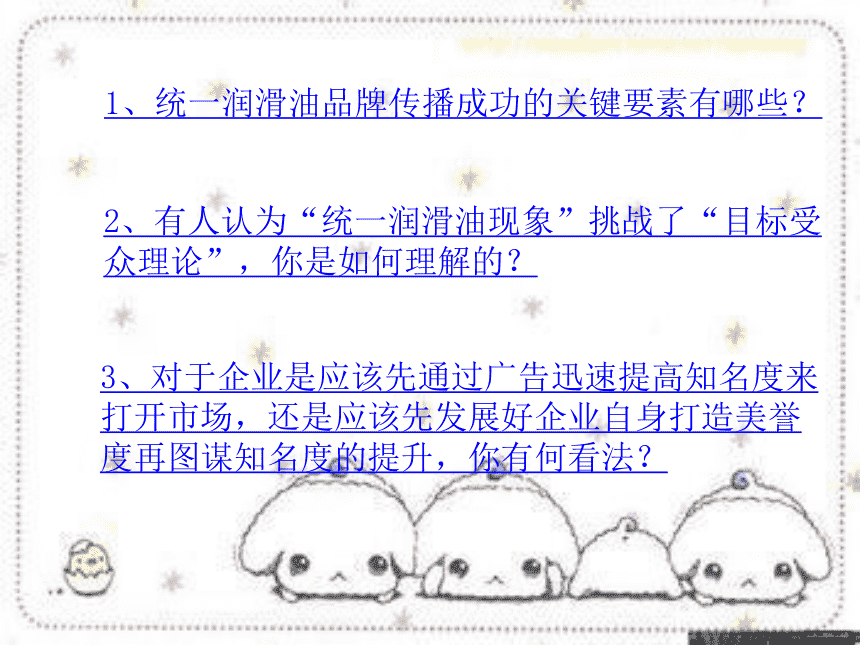 1、统一润滑油品牌传播成功的关键要素有哪些?
2、有人认为“统一润滑油现象”挑战了“目标受
众理论”,你是如何理解的?
3、对于企业是应该先通过广告迅速提高知名度来
打开市场,还是应该先发展好企业自身打造美誉
度再图谋知名度的提升,你有何看法?